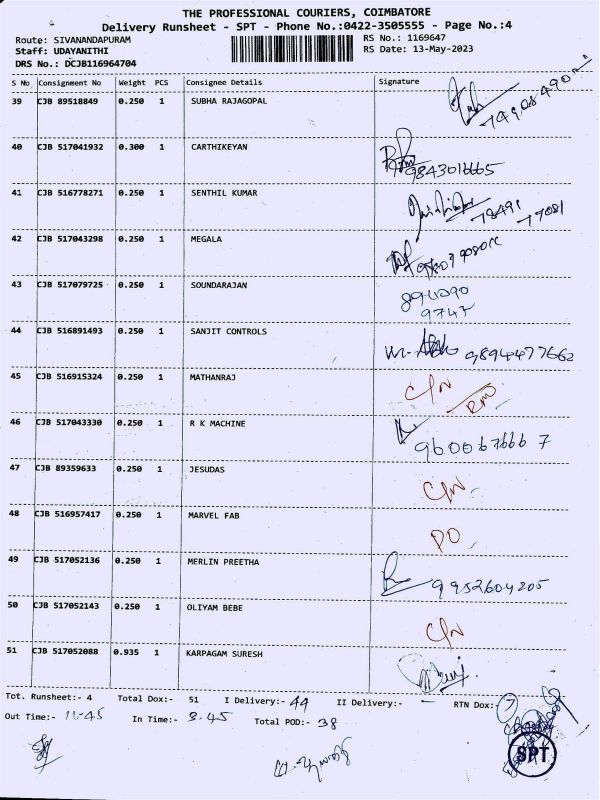 THE PROFESSIONAL COURIERS, COIMBATORE
Delivery Runsheet - SPT - Phone No.:0422-3505555 - Page No.:4
Route: SIVANANDAPURAM
RS No.: 1169647
Staff: UDAYANITHI
RS Date: 13-May-2023
DRS No.: DCJB116964704
S No Consignment No Weight PCS Consignee Details Signature
39 CJB 89518849 0.250 1 SUBHA RAJAGOPAL
40 CJB 517041932 0.300 1 CARTHIKEYAN
9843016665
41 CJB 516778271 0.250 1 SENTHIL KUMAR
78491
77081
42 CJB 517043298 0.250 1 MEGALA
43 CJB 517079725 0.250 1 SOUNDARAJAN
894090
9747
44 CJB 516891493 0.250 1 SANJIT CONTROLS
9894477662
45 CJB 516915324 0.250 1 MATHANRAJ C/N
46 CJB 517043330 0.250 1 R K MACHINE
9600676667
47 CJB 89359633 0.250 1 JESUDAS
C/N
48 CJB 516957417 0.250 1 MARVEL FAB
PO
49 CJB 517052136 0.250 1 MERLIN PREETHA
9952604205
50 CJB 517052143 0.250 1 OLIYAM BEBE
C/N
51 CJB 517052088 0.935 1 KARPAGAM SURESH
Tot. Runsheet:- 4 Total Dox:- 51 I Delivery:- 44 II Delivery:- — RTN Dox:- 7
Out Time:- 11-45 In Time:- 3.45 Total POD:- 38
SPT